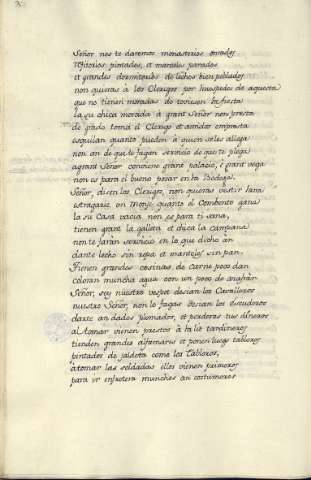 Señor nos te daremos monasterios onrados
refitorios pintados, et manteles parados
et grandes dormitorios de lechos bien poblados
non quieras à los Clerigos por huespedes de aquesta
que no tienen morada do tovieses la fiesta
la su chica morada à grant Señor non presta
de grado toma el Clerigo et amidos empresta
esquilan quanto pueden à quien seles allega
non an de que te fagan servicio de que te plega
a grant Señor conviene grant palacio, è grant vega
non es para el bueno posar en la Bodega.
Señor, disen los Clerigos, non quieras vestir lana
estragarie un Monje quanto el Combento gana
la su Casa vacia non es para ti sana,
tienen grant la galleta et chica la campana
non te faran servicio en lo que dicho an
dante lecho sin ropa et manteles sin pan.
Tienen grandes cosinas de carne poco dan
coloran muncha agua con un poco de azafran
Señor, sey nuestro vesped desian los Cavalleros
nuestro Señor, non lo fagas desian los escuderos
darte an dados plomados, et perderas tus dineros
al tomar vienen prestos à la lid tardineros
tienden grandes alfamares et ponen luego tableros
pintados de jaldeta como los Tableros,
a tomar las soldadas ellos vienen primeros
para ir en frontera munchos an costumeros